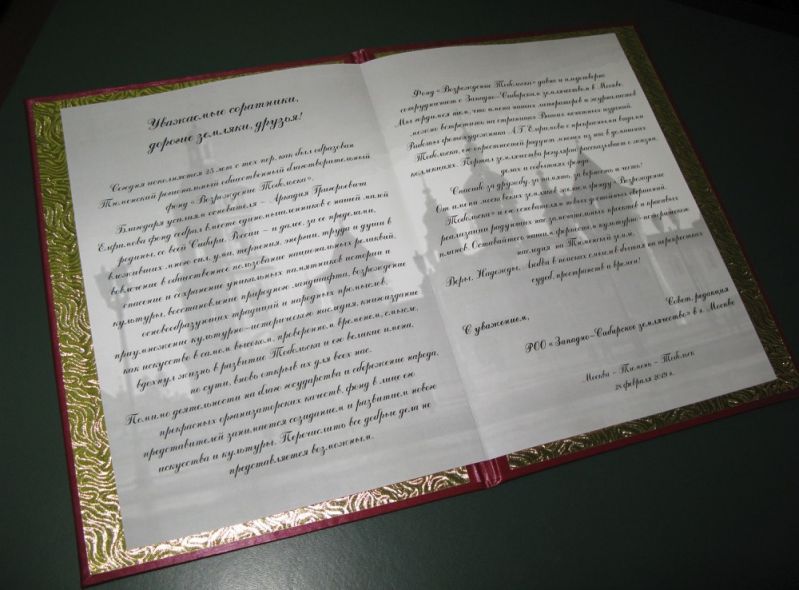 Уважаемые соратники,
дорогие земляки, друзья!
Сегодня исполняется 25 лет с тех пор, как был образован
Тюменский региональный общественный благотворительный
фонд «Возрождение Тобольска».
Благодаря усилиям основателя – Аркадия Григорьевича
Елфимова фонд собрал вместе единомышленников с нашей малой
родины, со всей Сибири, России – и далее, за ее пределами,
вложивших много сил, ума, терпения, энергии, труда и души в
вовлечение в общественное пользование национальных реликвий,
спасение и сохранение уникальных памятников истории и
культуры, восстановление природного ландшафта, возрождение
основообразующих традиций и народных промыслов,
приумножении культурно-исторического наследия, книгоиздание
как искусство в самом высоком, проверенном временем, смысле,
вдохнул жизнь в развитие Тобольска и его великие имена,
по сути, вновь открыв их для всех нас.
Помимо деятельности на благо государства и сбережение народа,
прекрасных организаторских качеств, фонд в лице его
представителей занимается созиданием и развитием нового
искусства и культуры. Перечислить все добрые дела не
представляется возможным.
Фонд «Возрождение Тобольска» давно и плодотворно
сотрудничает с Западно-Сибирским землячеством в г. Москве.
Мы гордимся тем, что имена наших литераторов и журналистов
можно встретить на страницах Ваших книжных изданий.
Работы фотохудожника А.Г. Елфимова с прекрасными видами
Тобольска, его окрестностей радуют многих из нас в домашних
коллекциях. Портал землячества регулярно рассказывает о жизни,
делах и событиях фонда.
Спасибо за дружбу, за память, за верность и честь!
От имени многих земляков желаем фонду «Возрождение
Тобольска» и его основателю новых успешных свершений,
реализации радующих нас замечательных проектов и красивых
планов. Оставайтесь нашим форпостом культурно-исторического
наследия на Тюменской земле.
Веры, Надежды, Любви в поисках смыслов бытия на перекрестках
судеб, пространств и времен!
С уважением,
Совет, редакция
РОО «Западно-Сибирское землячество» в г. Москве
Москва – Тюмень – Тобольск
28 февраля 2019 г.